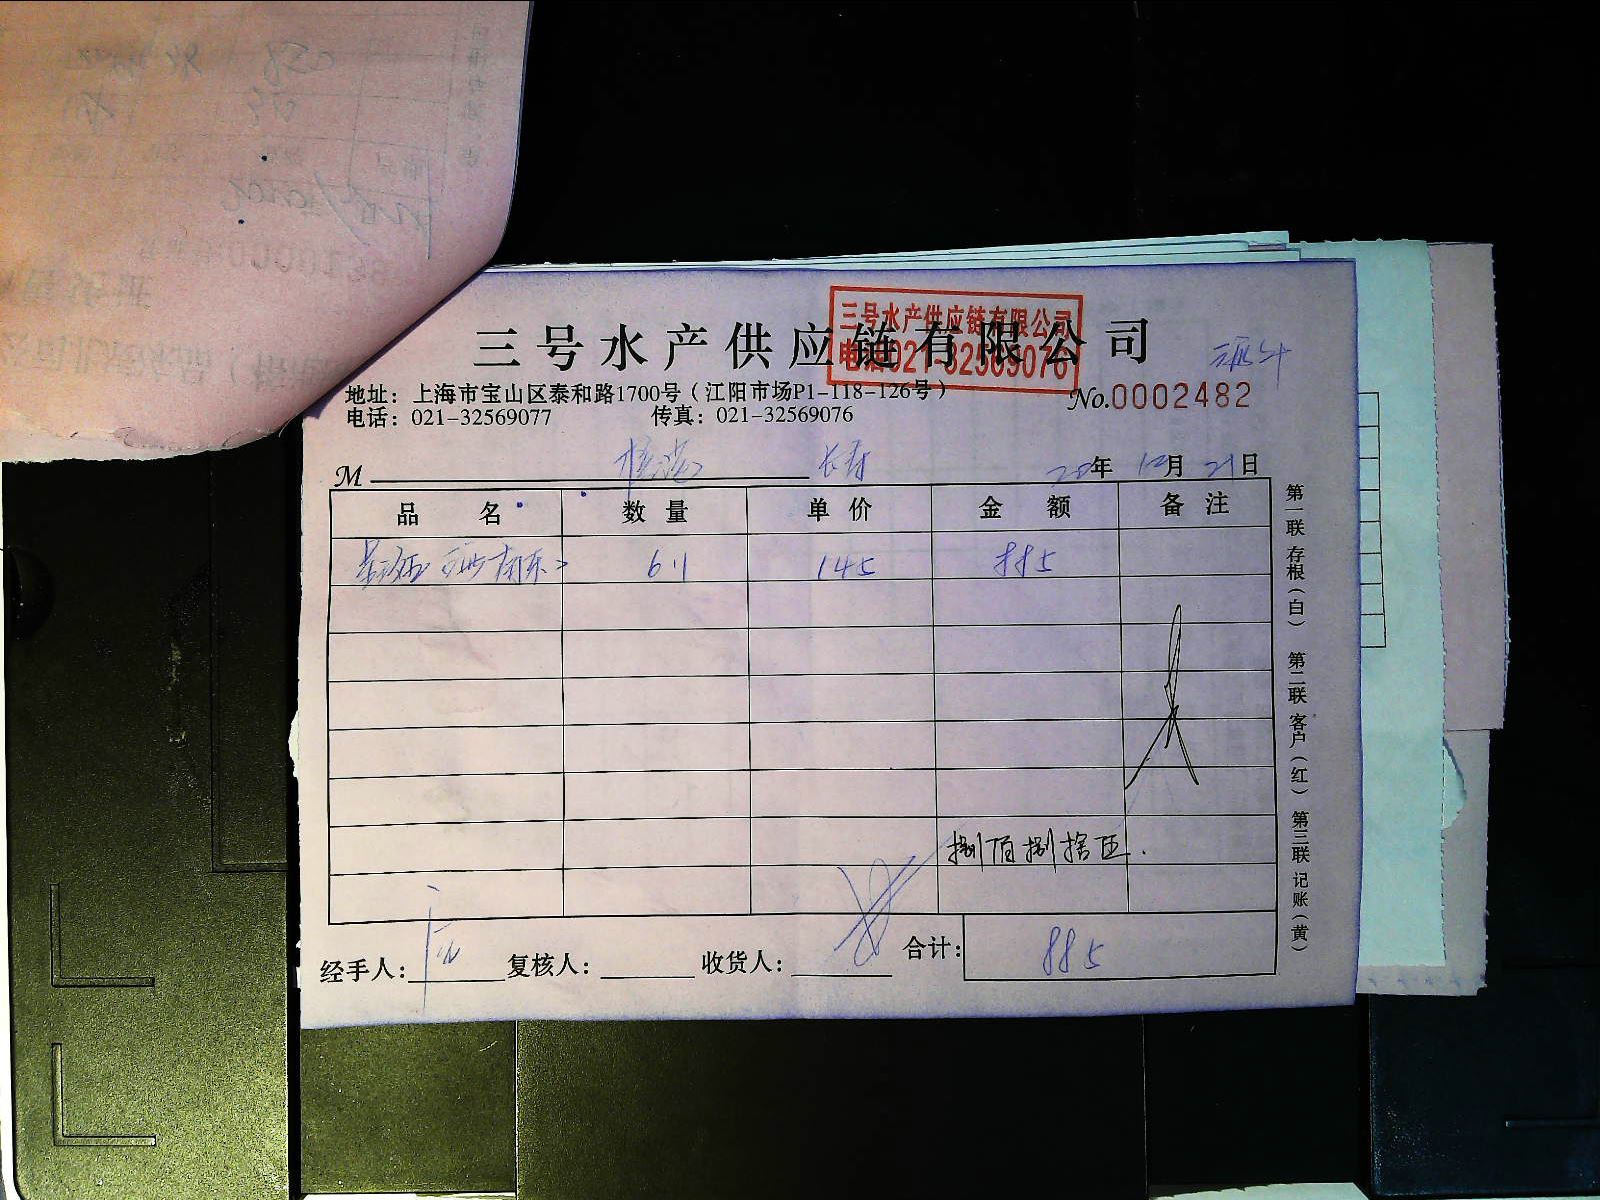 三号水产供应链有限公司
三号水产供应链有限公司
电话021-32569076
地址：上海市宝山区泰和路1700号（江阳市场P1-118-126号）
No.0002482
电话：021-32569077 传真：021-32569076
M 长寿 年 12月 21日
品名 数量 单价 金额 备注
6.1 145 885
捌佰捌拾伍
经手人： 复核人： 收货人： 合计： 885
第一联 存根（白） 第二联 客户（红） 第三联 记账（黄）